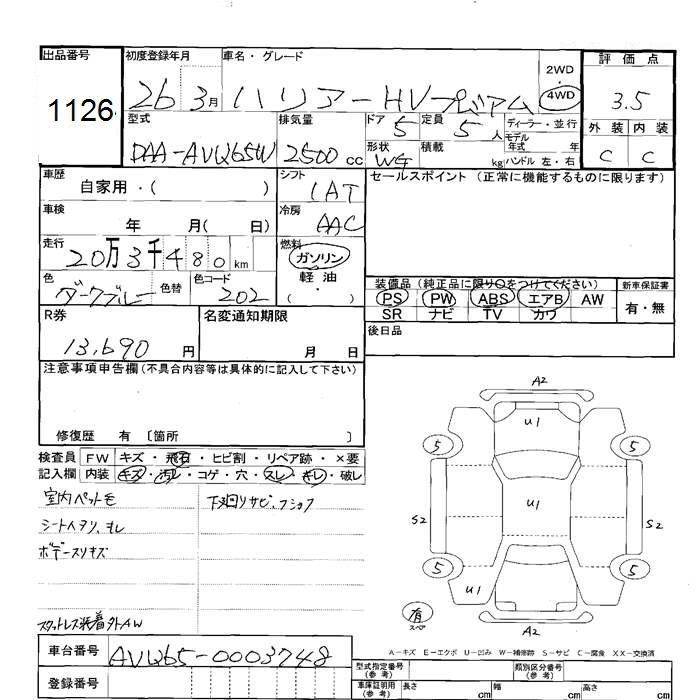 出品番号 初度登録年月 車名・グレード 2WD・4WD 評価点
1126 26 3月 ハリアーHVプレミアム 3.5
型式 排気量 ドア 5 定員 5人 ディーラー・並行 外装 内装
モデル年式 年
DAA-AVQ65W 2500cc 形状 WG 積載 kg ハンドル 左・右 C C
車歴 シフト セールスポイント (正常に機能するものに限ります)
自家用・( ) IAT
車検 冷房
年 月( 日) AAC
走行 20万3千480km 燃料 ガソリン
軽油
色 色替 色コード ( ・ )
ダークブルー 202
装備品 (純正品に限り○をつけてください) 新車保証書
PS PW ABS エアB AW 有・無
SR ナビ TV カワ
R券 名変通知期限 後日品
13,690円 月 日
注意事項申告欄 (不具合内容等は具体的に記入して下さい)
修復歴 有 〔箇所 〕
検査員 FW キズ・飛石・ヒビ割・リペア跡・×要
記入欄 内装 キズ・汚レ・コゲ・穴・スレ・キレ・破レ
室内ペット毛 下廻リサビ、フショク
シートヘタリ、モレ
ボデースリキズ
スタットレス装着 外AW
A2
U1
5 5
U1
S2 S2
5 5
U1
有
スペア
A2
A-キズ E-エクボ U-凹み W-補修跡 S-サビ C-腐食 XX-交換済
車台番号 AVQ65-0003748
登録番号
型式指定番号 (参考) 類別区分番号 (参考)
車庫証明用 (参考) 長さ cm 幅 cm 高さ cm